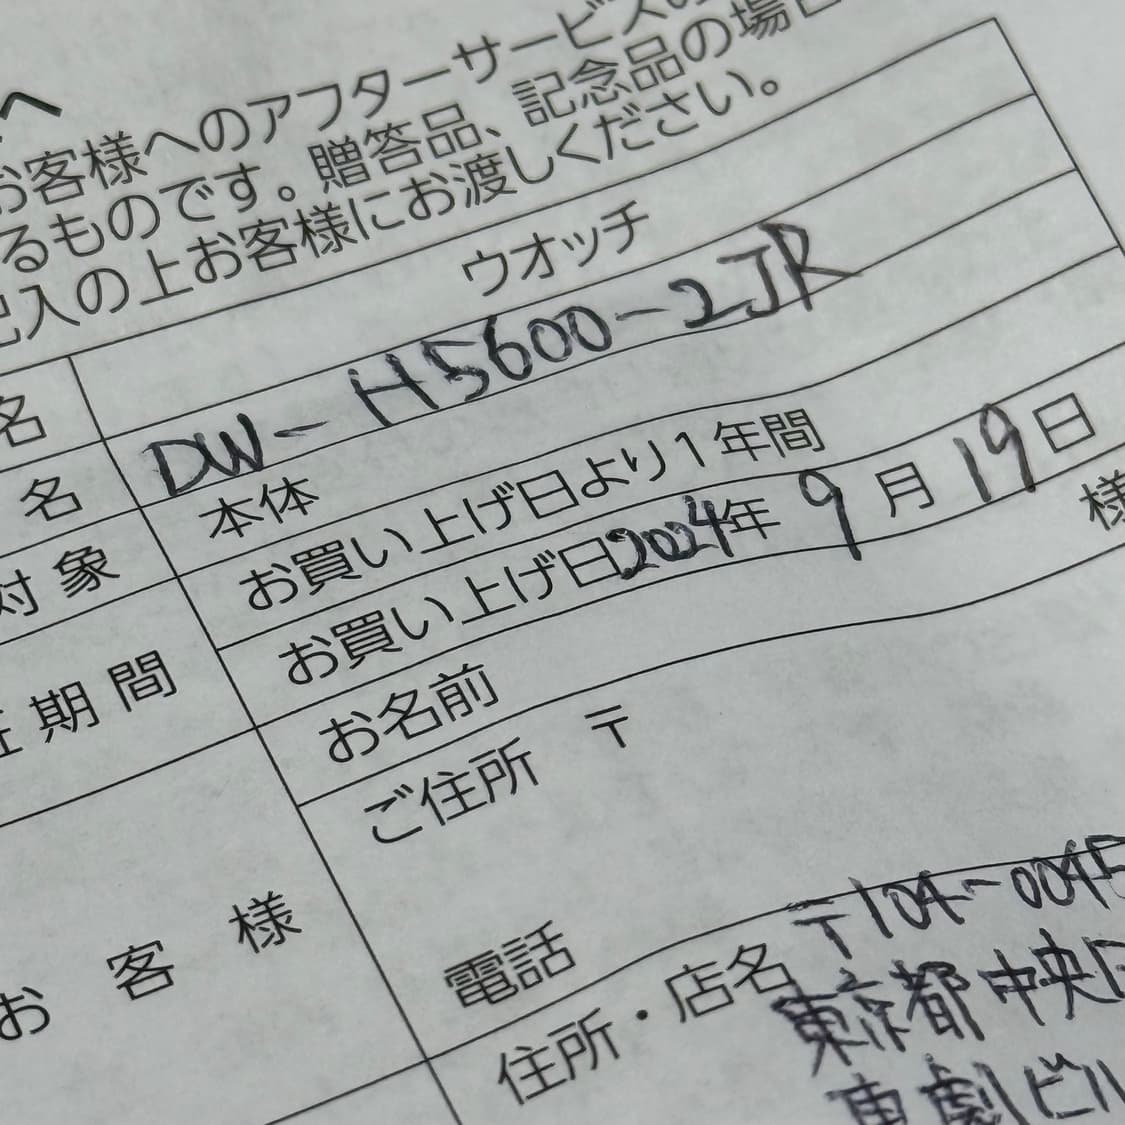 へ
お客様へのアフターサービスの
るものです。贈答品、記念品の場合
記入の上お客様にお渡しください。
名 ウオッチ
名 DW-H5600-2JR
対象 本体
期間 お買い上げ日より1年間
お買い上げ日2024年9月19日
お客様 お名前 様
ご住所 〒
電話
住所・店名 〒104-0045
東京都中央区
東劇ビル